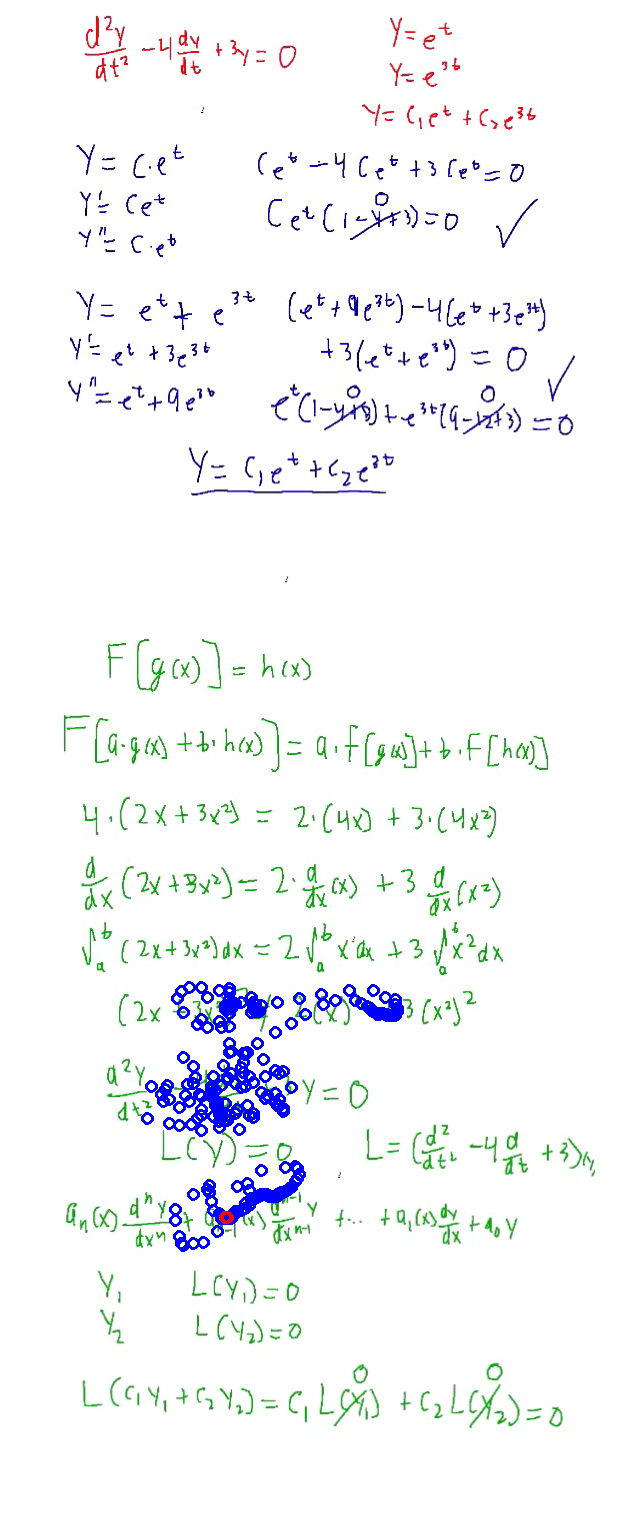 d²y/dt² - 4 dy/dt + 3y = 0
Y = e^t
Y = e^3t
Y = C₁e^t + C₂e^3t
Y = C·e^t
Ce^t - 4Ce^t + 3Ce^t = 0
Y' = Ce^t
Ce^t(1-4+3) = 0 ✓
0
Y'' = C·e^t
Y = e^t + e^3t
(e^t + 9e^3t) - 4(e^t + 3e^3t)
Y' = e^t + 3e^3t
+3(e^t + e^3t) = 0 ✓
Y'' = e^t + 9e^3t
0 0
e^t(1-4+3) + e^3t(9-12+3) = 0
Y = C₁e^t + C₂e^3t
F[g(x)] = h(x)
F[a·g(x) + b·h(x)] = a·F[g(x)] + b·F[h(x)]
4·(2x + 3x²) = 2·(4x) + 3·(4x²)
d/dx (2x + 3x²) = 2·d/dx (x) + 3 d/dx (x²)
∫_a^b (2x + 3x²)dx = 2∫_a^b x dx + 3∫_a^b x² dx
(2x 3x (x) 3(x²)²
d²y/dt² Y = 0
L(Y) = 0
L = (d²/dt² - 4 d/dt + 3)(y)
aₙ(x) dⁿy/dxⁿ + (x) dⁿ⁻¹y/dxⁿ⁻¹ + ... + a₁(x) dy/dx + a₀y
Y₁ L(Y₁) = 0
Y₂ L(Y₂) = 0
0 0
L(C₁Y₁ + C₂Y₂) = C₁L(Y₁) + C₂L(Y₂) = 0